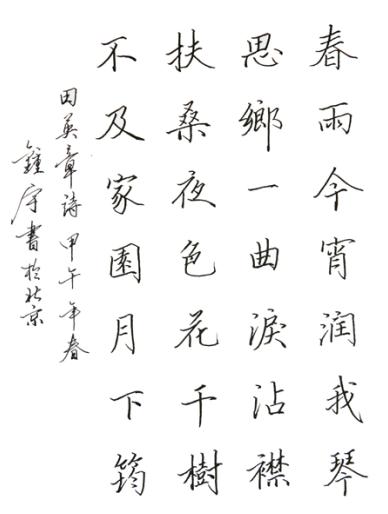 春雨今宵润我琴
思鄉一曲淚沾襟
扶桑夜色花千樹
不及家園月下筠
田英章詩甲午年春
鍾宇書於北京